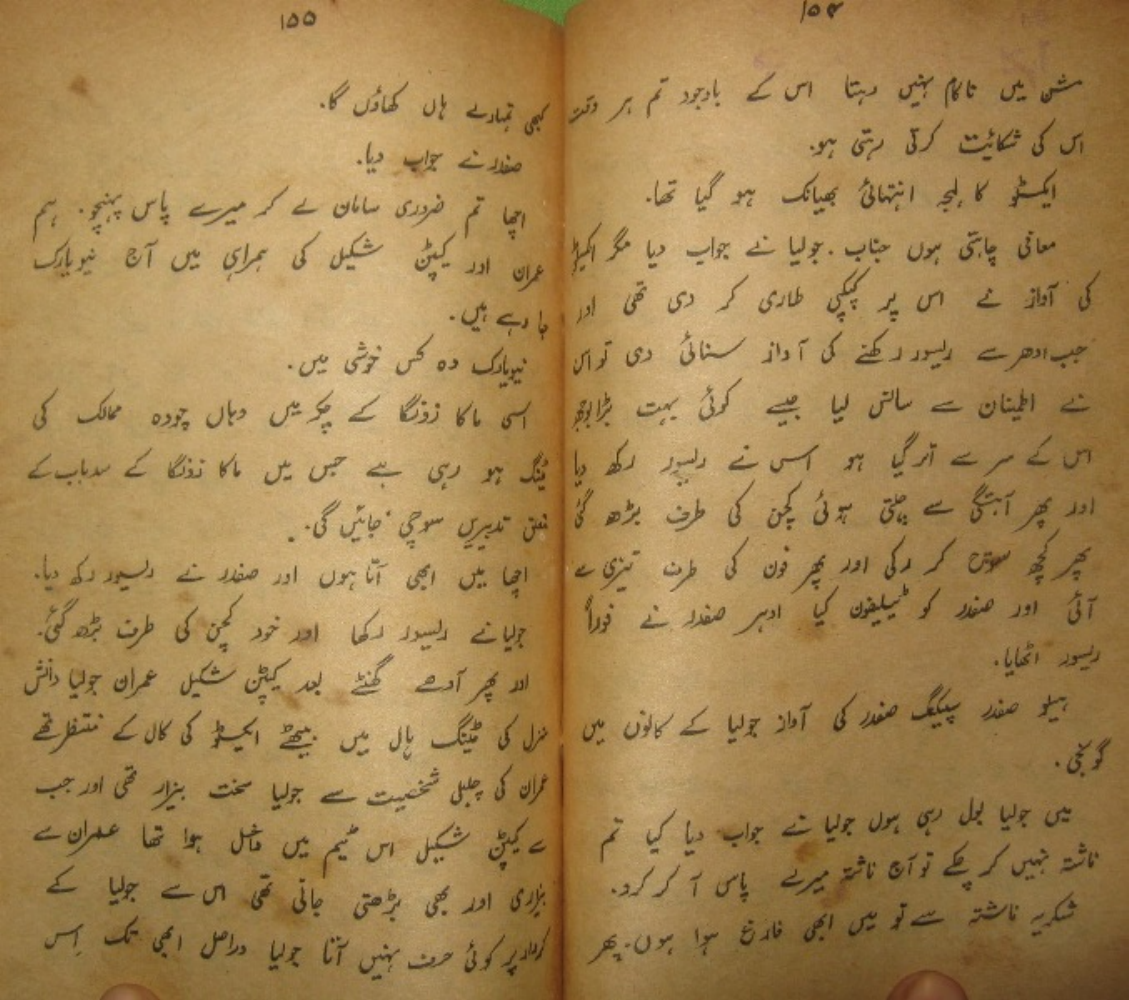 ۱۵۴
مشن میں ناکام نہیں رہتا اس کے باوجود تم ہر وقت
اس کی شکائیت کرتی رہتی ہو۔
ایکسٹو کا لہجہ انتہائی بھیانک ہو گیا تھا۔
معافی چاہتی ہوں جناب۔ جولیا نے جواب دیا مگر ایکسٹو
کی آواز نے اس پر کپکپی طاری کر دی تھی اور
جب ادھر سے رسیور رکھنے کی آواز سنائی دی تو اس
نے اطمینان سے سانس لیا جیسے کوئی بہت بڑا بوجھ
اس کے سر سے اتر گیا ہو اس نے رسیور رکھ دیا
اور پھر آہستگی سے چلتی ہوئی کچن کی طرف بڑھ گئی
پھر کچھ سوچ کر رکی اور پھر فون کی طرف تیزی سے
آئی اور صفدر کو ٹیلیفون کیا ادہر صفدر نے فوراً
رسیور اٹھایا۔
ہیلو صفدر سپیکنگ صفدر کی آواز جولیا کے کانوں میں
گونجی۔
میں جولیا بول رہی ہوں جولیا نے جواب دیا کیا تم
ناشتہ نہیں کر چکے تو آج ناشتہ میرے پاس آ کر کرو۔
شکریہ ناشتہ سے تو میں ابھی فارغ ہوا ہوں۔ پھر
۱۵۵
کبھی تمہارے ہاں کھاؤں گا۔
صفدر نے جواب دیا۔
اچھا تم ضروری سامان لے کر میرے پاس پہنچو۔ ہم
عمران اور کیپٹن شکیل کی ہمراہی میں آج نیویارک
جا رہے ہیں۔
نیویارک وہ کس خوشی میں۔
اسی ماکا زونگا کے چکر میں وہاں چودہ ممالک کی
میٹنگ ہو رہی ہے جس میں ماکا زونگا کے سدباب کے
متعلق تدبیریں سوچی جائیں گی۔
اچھا میں ابھی آتا ہوں اور صفدر نے رسیور رکھ دیا۔
جولیا نے رسیور رکھا اور خود کچن کی طرف بڑھ گئی۔
اور پھر آدھے گھنٹے بعد کیپٹن شکیل عمران جولیا دانش
منزل کی میٹنگ ہال میں بیٹھے ایکسٹو کی کال کے منتظر تھے
عمران کی چلبلی شخصیت سے جولیا سخت بیزار تھی اور جب
سے کیپٹن شکیل اس ٹیم میں داخل ہوا تھا عمران سے
بیزاری اور بھی بڑھتی جاتی تھی اس سے جولیا کے
کردار پر کوئی حرف نہیں آتا جولیا دراصل ابھی تک اِس